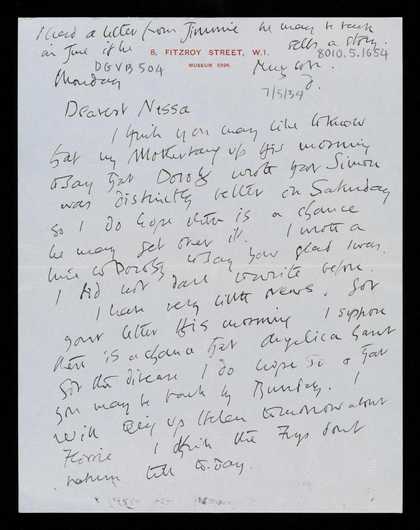 I had a letter from Jimmie he may be back
in June if he sells a story.
6, FITZROY STREET, W.1.
MUSEUM
8010.5.1654
DGVB504
Monday
7/5/34
Dearest Nessa
I think you may like to know
that my Mother rang up this morning
to say that Dorothy wrote that Simon
was distinctly better on Saturday
so I do hope there is a chance
he may get over it. I wrote a
line to Dorothy to say how glad I was.
I did not dare to write before.
I have very little news. Got
your letter this morning I suppose
there is a chance that Angelica hasnt
got the disease I do hope so & that
you may be back by Sunday. I
will ring up Helen tomorrow about
I think the Frys dont
return till to-day.